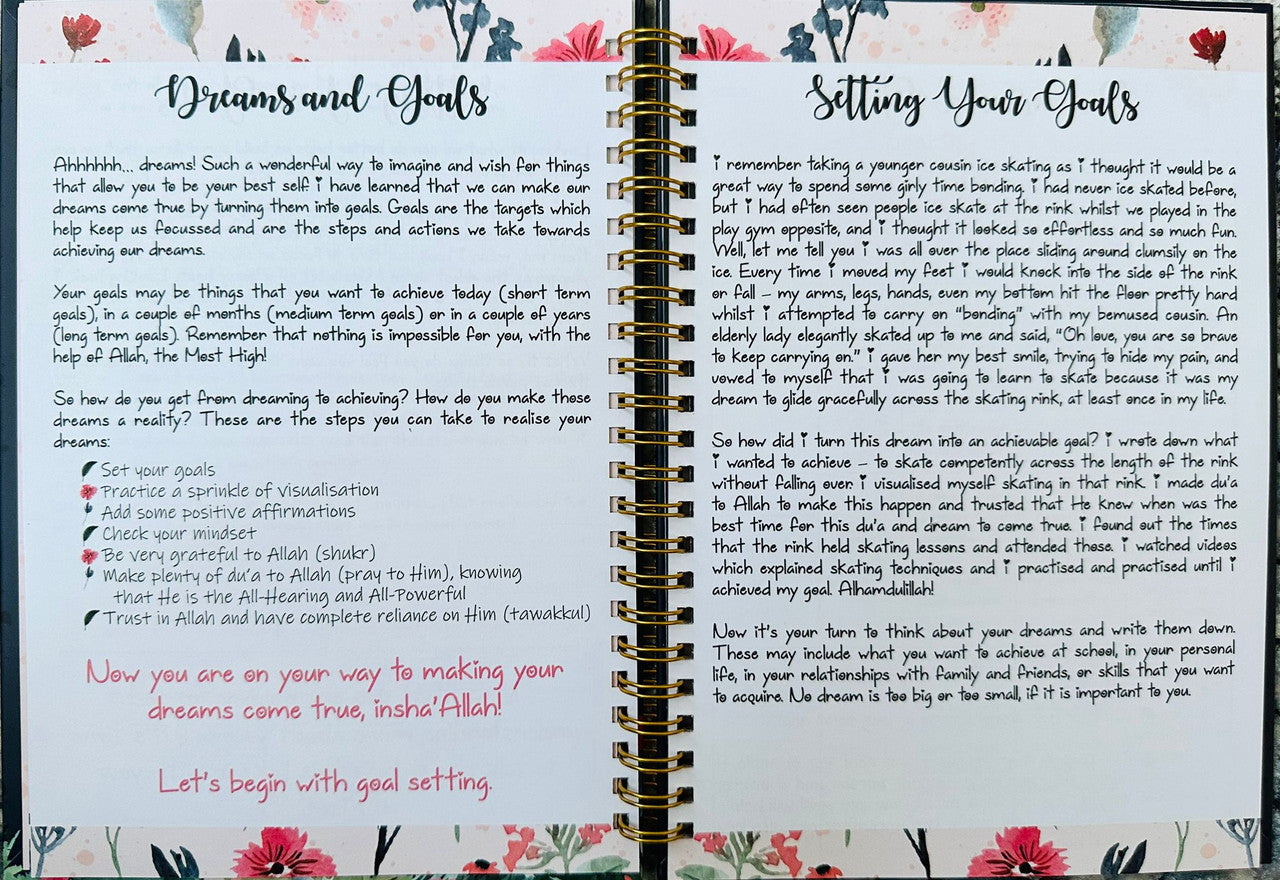 Dreams and Goals
Ahhhhhh... dreams! Such a wonderful way to imagine and wish for things
that allow you to be your best self i have learned that we can make our
dreams come true by turning them into goals. Goals are the targets which
help keep us focussed and are the steps and actions we take towards
achieving our dreams.
Your goals may be things that you want to achieve today (short term
goals), in a couple of months (medium term goals) or in a couple of years
(long term goals). Remember that nothing is impossible for you, with the
help of Allah, the Most High!
So how do you get from dreaming to achieving? How do you make those
dreams a reality? These are the steps you can take to realise your
dreams:
Set your goals
Practice a sprinkle of visualisation
Add some positive affirmations
Check your mindset
Be very grateful to Allah (shukr)
Make plenty of du'a to Allah (pray to Him), knowing
that He is the All-Hearing and All-Powerful
Trust in Allah and have complete reliance on Him (tawakkul)
Now you are on your way to making your
dreams come true, insha'Allah!
Let's begin with goal setting.
Setting Your Goals
i remember taking a younger cousin ice skating as i thought it would be a
great way to spend some girly time bonding. i had never ice skated before,
but i had often seen people ice skate at the rink whilst we played in the
play gym opposite, and i thought it looked so effortless and so much fun.
Well, let me tell you i was all over the place sliding around clumsily on the
ice. Every time i moved my feet i would knock into the side of the rink
or fall – my arms, legs, hands, even my bottom hit the floor pretty hard
whilst i attempted to carry on "bonding" with my bemused cousin. An
elderly lady elegantly skated up to me and said, "Oh love, you are so brave
to keep carrying on." i gave her my best smile, trying to hide my pain, and
vowed to myself that i was going to learn to skate because it was my
dream to glide gracefully across the skating rink, at least once in my life.
So how did i turn this dream into an achievable goal? i wrote down what
i wanted to achieve – to skate competently across the length of the rink
without falling over. i visualised myself skating in that rink. i made du'a
to Allah to make this happen and trusted that He knew when was the
best time for this du'a and dream to come true. i found out the times
that the rink held skating lessons and attended those. i watched videos
which explained skating techniques and i practised and practised until i
achieved my goal. Alhamdulillah!
Now it's your turn to think about your dreams and write them down.
These may include what you want to achieve at school, in your personal
life, in your relationships with family and friends, or skills that you want
to acquire. No dream is too big or too small, if it is important to you.